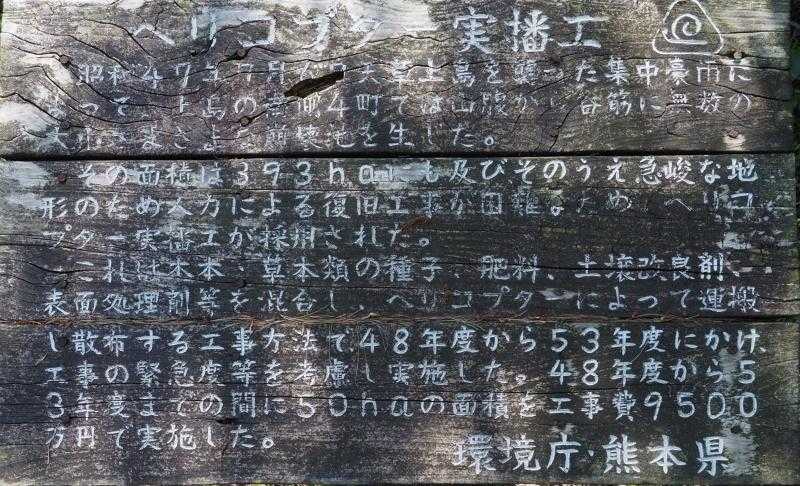 ヘリコプター実播工
昭和47年7月天草上島を襲った集中豪雨に
よって、上島の4町では山腹か谷筋に無数の
大小さまざまな崩壊地を生じた。
その面積は393haにも及びそのうえ急峻な地
形のため人力による復旧工事が困難なためヘリコ
プター実播工が採用された。
これは木本・草本類の種子、肥料、土壌改良剤、
表面処理剤等を混合し、ヘリコプターによって運搬
し散布する工事方法で48年度から53年度にかけ、
工事の緊急度等を考慮し実施した。48年度から5
3年度までの間に50haの面積を工事費9500
万円で実施した。
環境庁・熊本県